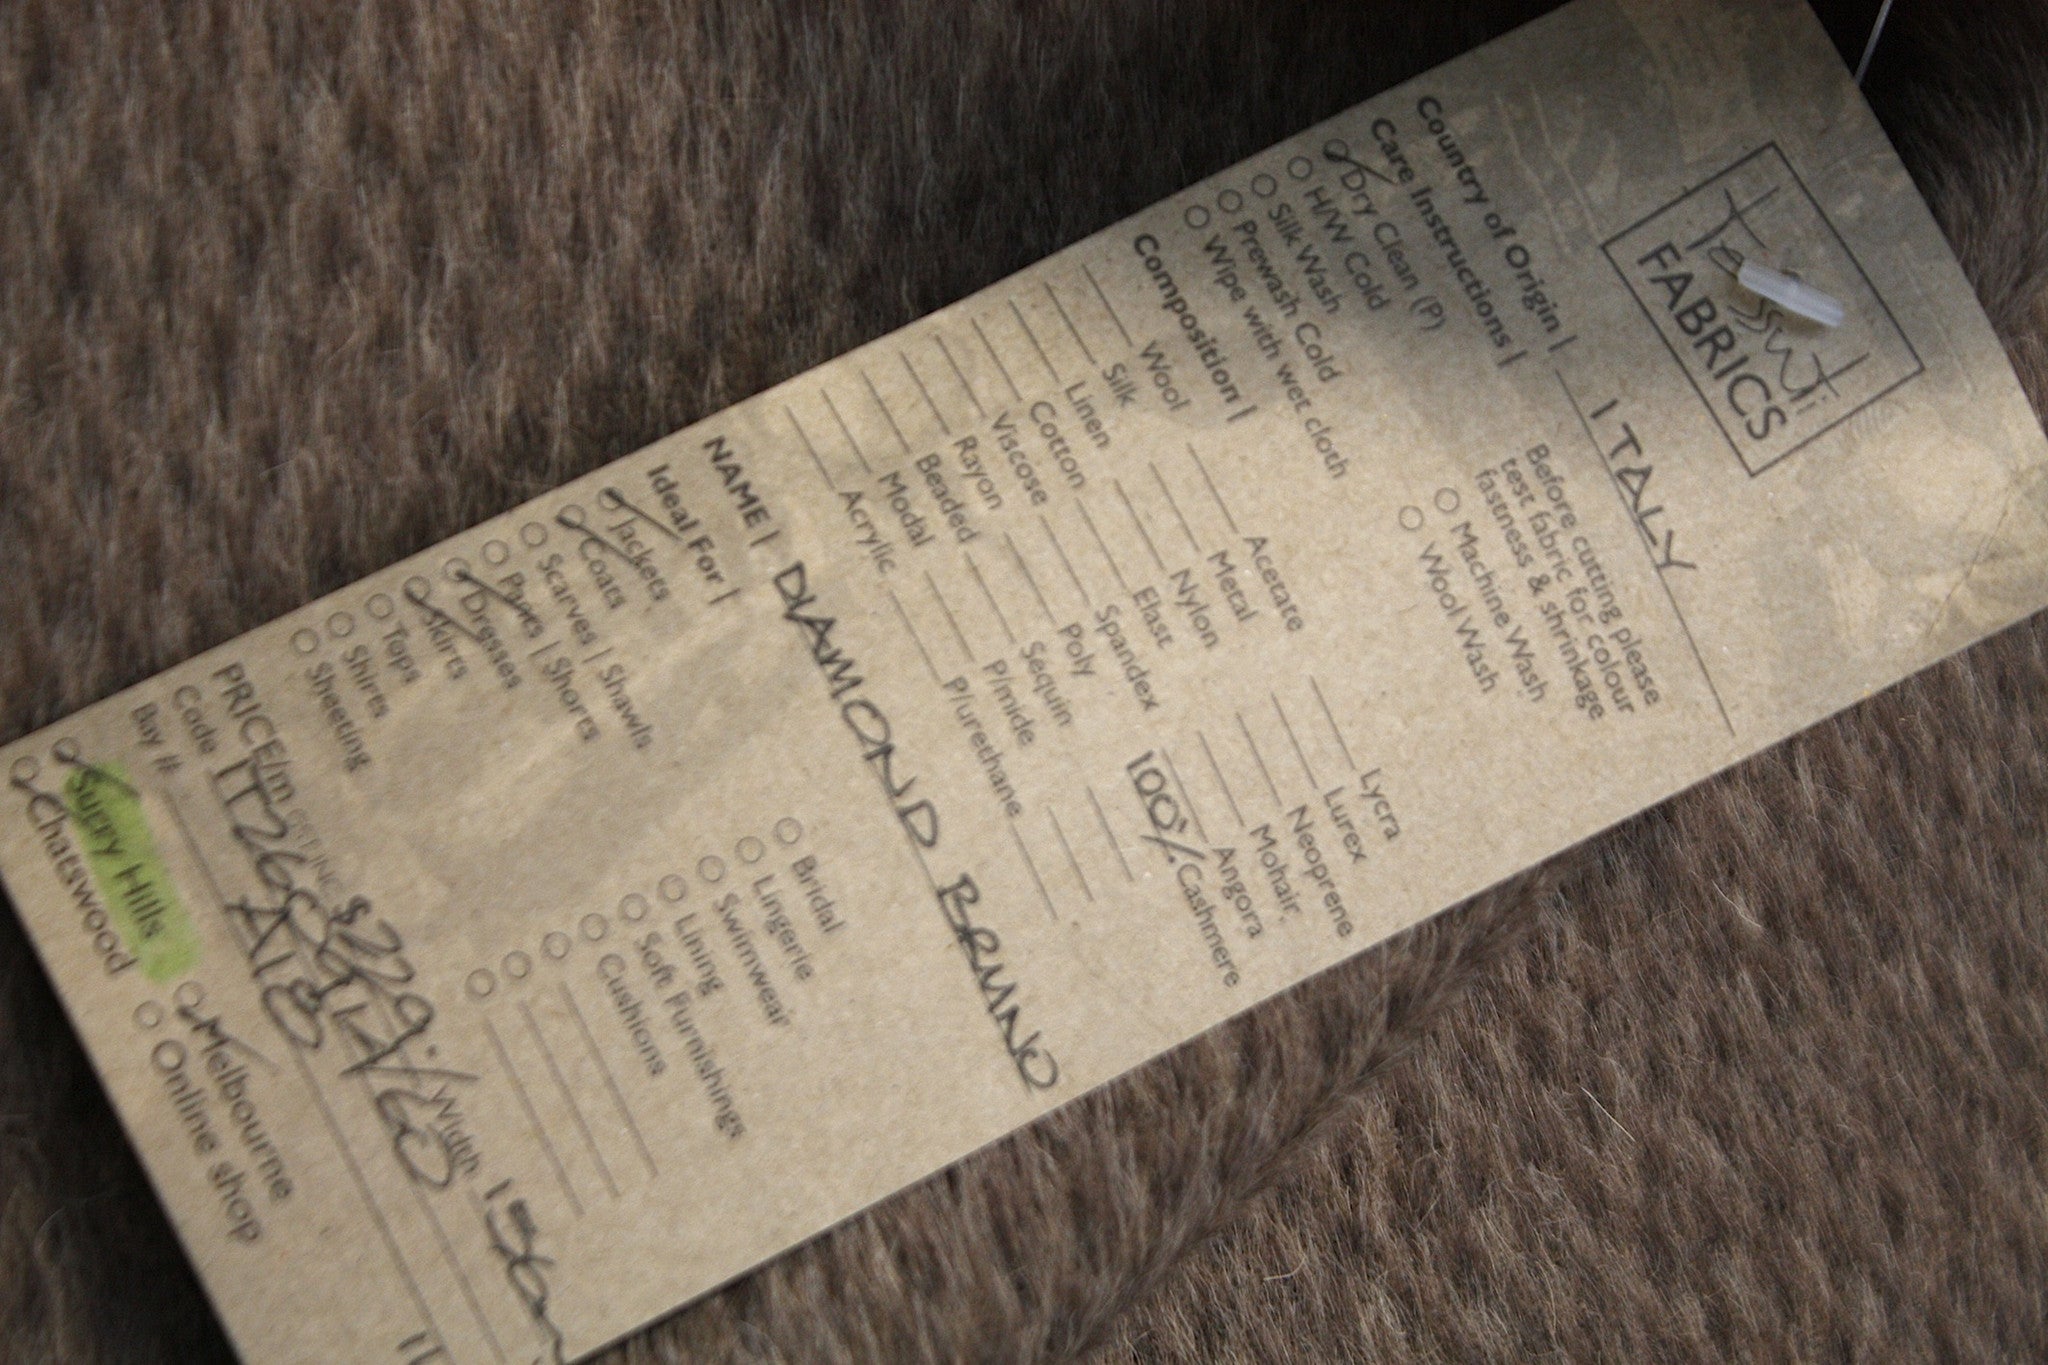 Tessuti
FABRICS
Country of Origin | ITALY
Care Instructions |
Dry Clean (P)
H/W Cold
Silk Wash
Prewash Cold
Wipe with wet cloth
Before cutting please
test fabric for colour
fastness & shrinkage
Machine Wash
Wool Wash
Composition |
Wool
Silk
Linen
Cotton
Viscose
Rayon
Beaded
Modal
Acrylic
Acetate
Metal
Nylon
Elast
Spandex
Poly
Sequin
P/mide
P/urethane
Lycra
Lurex
Neoprene
Mohair
Angora
100% Cashmere
NAME | DIAMOND BRUNO
Ideal For |
Jackets
Coats
Scarves | Shawls
Pants | Shorts
Dresses
Skirts
Tops
Shirts
Sheeting
Bridal
Lingerie
Swimwear
Lining
Soft Furnishings
Cushions
PRICE/m GST INC $229. Width 156
Code
Buy # A18
Surry Hills
Chatswood
Melbourne
Online shop